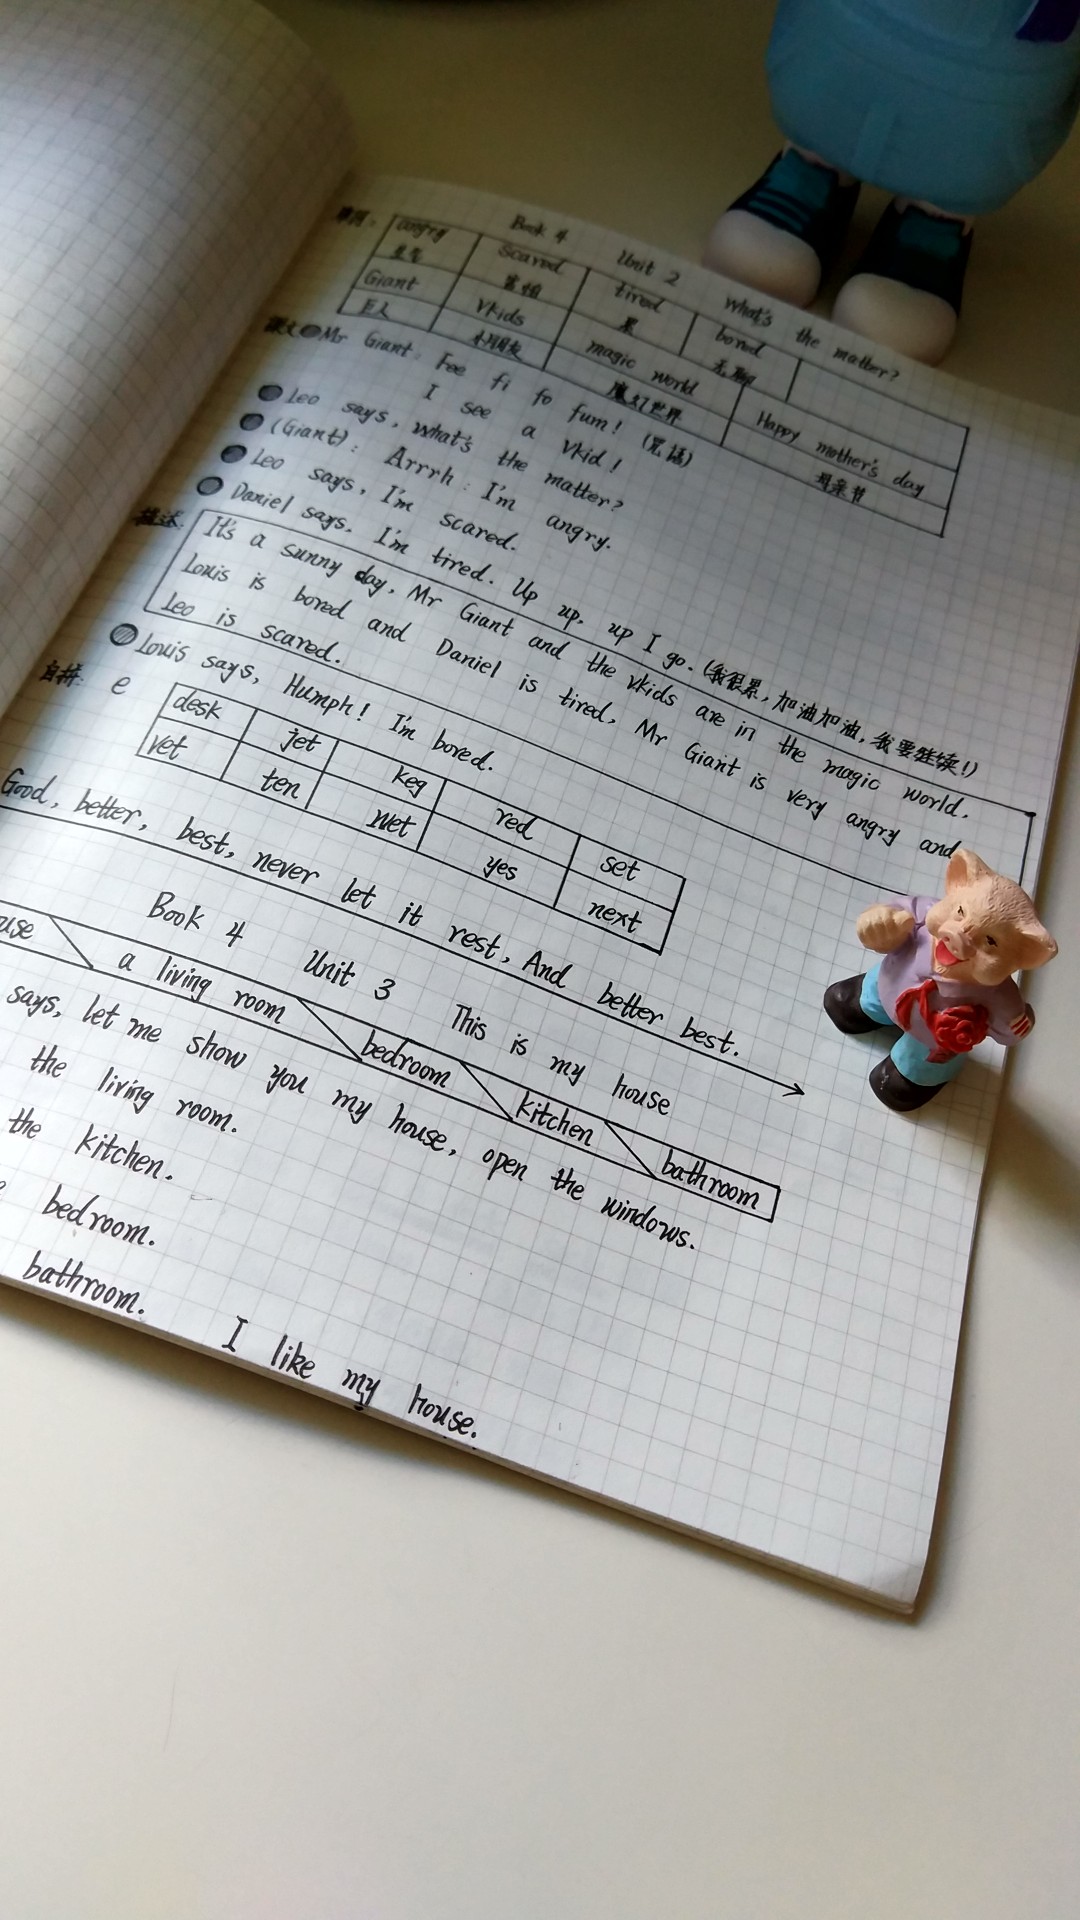 单词: Book 4 Unit 2 What's the matter?
angry scared tired bored
生气 害怕 累 无聊
Giant Vkids magic world Happy mother's day
巨人 小朋友 魔幻世界 母亲节
课文 Mr Giant: Fee fi fo fum! (咒语)
I see a Vkid!
Leo says, What's the matter?
(Giant): Arrrh: I'm angry.
Leo says, I'm scared.
Daniel says, I'm tired. Up up, up I go. (我很累,加油加油,我要继续!)
描述: It's a sunny day, Mr Giant and the Vkids are in the magic world,
Louis is bored and Daniel is tired, Mr Giant is very angry and
Leo is scared.
Louis says, Humph! I'm bored.
自拼: e desk jet keg red set
vet ten wet yes next
Good, better, best, never let it rest, And better best.
Book 4 Unit 3 This is my house
a living room bedroom kitchen bathroom
says, let me show you my house, open the windows.
the living room.
the kitchen.
bedroom.
bathroom.
I like my house.